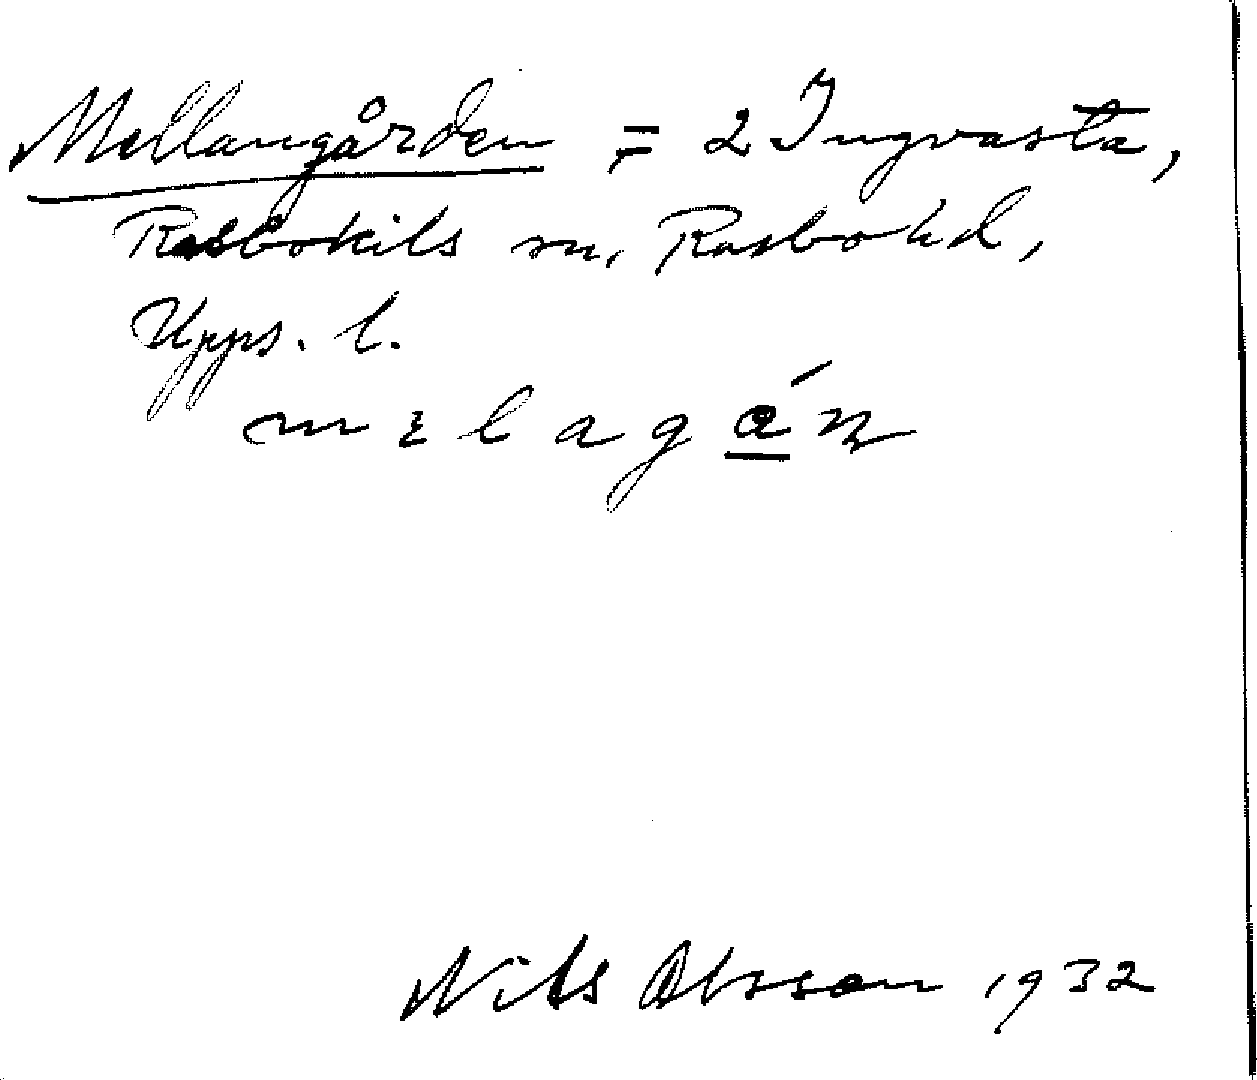 Mellangården = 2 Ingvasta,
Rasbokils sn, Rasbo hd,
Upps. l.
mɛlagá̱ɳ
Nils Olsson 1932